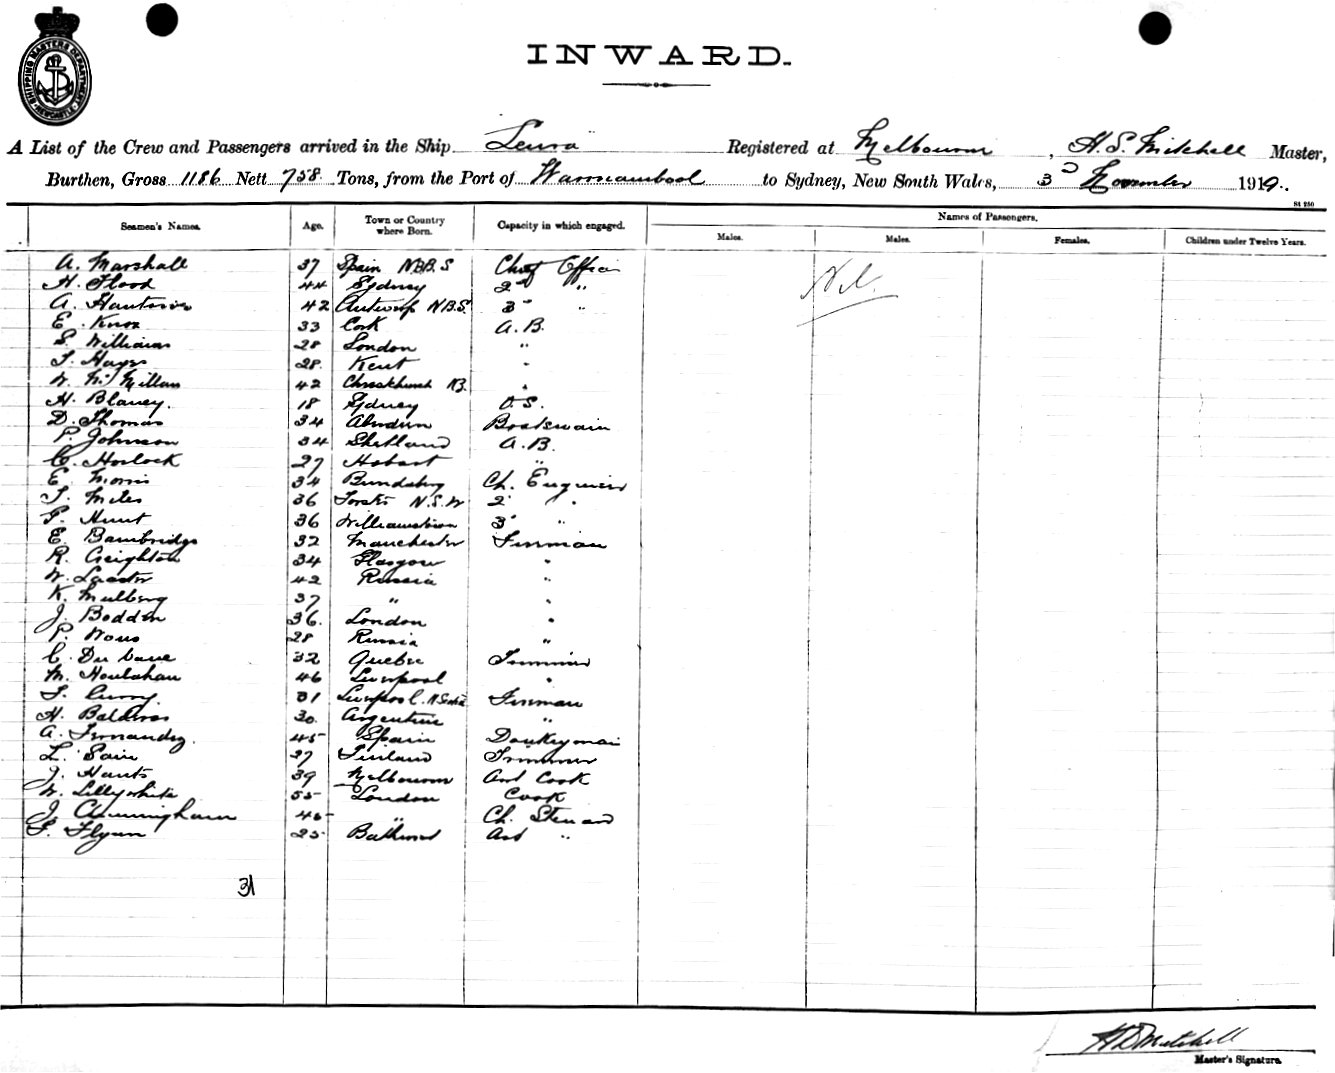 SHIPPING MASTERS DEPARTMENT NEWCASTLE
INWARD.
A List of the Crew and Passengers arrived in the Ship Leura Registered at Melbourne, H. S. Mitchell Master,
Burthen, Gross 1186 Nett 758 Tons, from the Port of Warrnambool to Sydney, New South Wales, 3 November 1919.
St 250
Seamen's Names. Age. Town or Country where Born. Capacity in which engaged. Names of Passengers.
Males. Males. Females. Children under Twelve Years.
A. Marshall 37 Spain N.B.S Chief Officer
H. Flood 44 Sydney 2nd "
A. 42 Antwerp N.B.S. 3 "
E. Knox 33 Cork A.B.
S. Williams 28 London "
T. Hayes 28 Kent "
W. McMillan 42 Christchurch "
H. Blaney. 18 Sydney O.S.
D. Thomas 34 Aberdeen Boatswain
P. Johnson 34 Shetland A.B.
C. Horlock 27 Hobart "
E. Morris 34 Bundaberg Ch. Engineer
T. Miles 36 Forster N.S.W 2 "
F. Hunt 36 Williamstown 3 "
E. Bambridge 32 Manchester Fireman
R. Creighton 34 Glasgow "
W. 42 Russia "
K. Mulberg 37 " "
J. Bodden 36. London "
P. 28 Russia "
C. 32 Quebec Trimmer
M. Houlahan 46 Liverpool "
T. Curry. 31 Liverpool. N Scotia Fireman
H. 30. Argentine "
A. Fernandez. 45 Spain Donkeyman
L. 27 Finland Trimmer
J. 39 Melbourne Asst Cook
W. Lillywhite 55 London Cook
J. Cunningham 45 " Ch. Steward
F. Flynn 25 Bathurst Asst "
Nil.
31
H S Mitchell
Master's Signature.